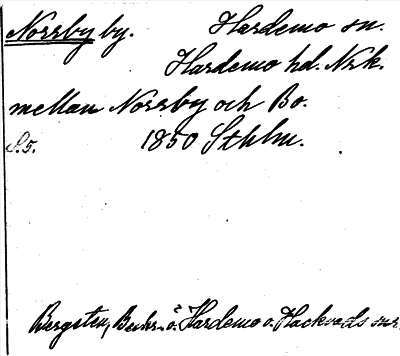 Norrby by. Hardemo sn.
Hardemo hd. Nrk.
mellan Norrby och Bo.
S. 5. 1850 Sthlm.
Bergsten, Beskr. ö. Hardemo o. Hackvads snr